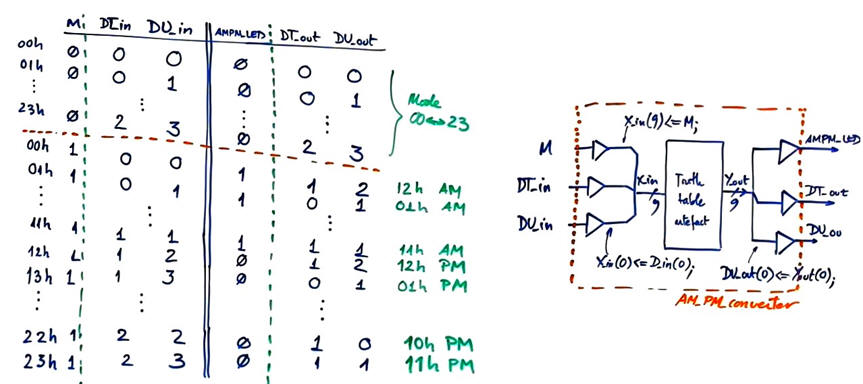 M DT_in DU_in AMPM_LED DT_out DU_out
00h 0 0 0 0 0 0
01h 0 0 1 0 0 1
23h 0 2 3 0 2 3
Mode
00↔23
00h 1 0 0 1 1 2 12h AM
01h 1 0 1 1 0 1 01h AM
11h 1 1 1 1 1 1 11h AM
12h 1 1 2 0 1 2 12h PM
13h 1 1 3 0 0 1 01h PM
22h 1 2 2 0 1 0 10h PM
23h 1 2 3 0 1 1 11h PM
X_in(9)<=M;
M
DT_in
DU_in
X_in
9
Truth
table
artefact
Y_out
9
AMPM_LED
DT_out
DU_ou
X_in(0)<=D_in(0);
DU_out(0)<=Y_out(0);
AM_PM_converter